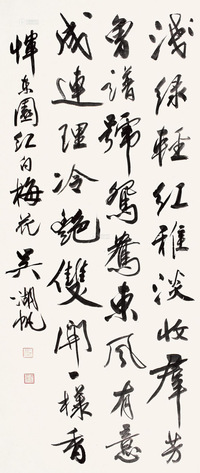 浅绿轻红雅淡收群芳
曾谱号鸳鸯东风有意
成连理冷艳双开一样香
恽东园红白梅花吴湖帆